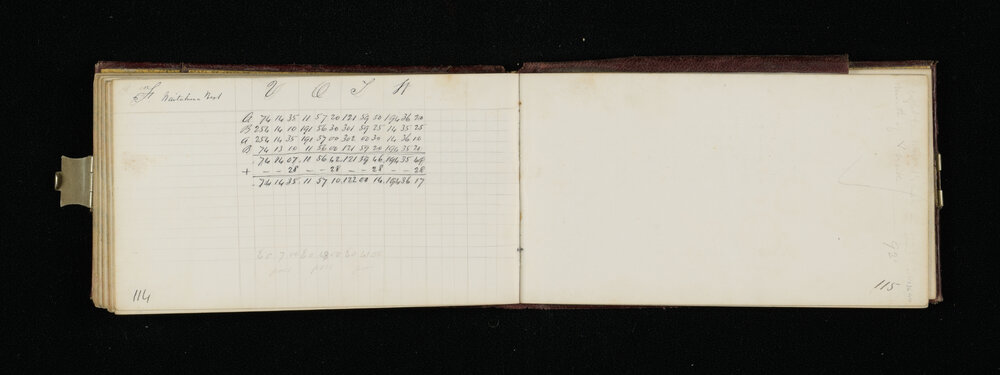 V O J N
A 74 14 35 11 57 20 121 59 50 194 36 20
B 254 14 10 191 56 30 301 59 25 14 35 25
A 254 14 35 191 57 00 302 00 30 14 36 10
B 74 13 10 11 56 00 121 59 20 194 35 20
74 14 07 11 56 42 121 59 46 194 35 49
+ – – 28 – – 28 – – 28 – – 28
74 14 35 11 57 10 122 00 14 194 36 17
114
115